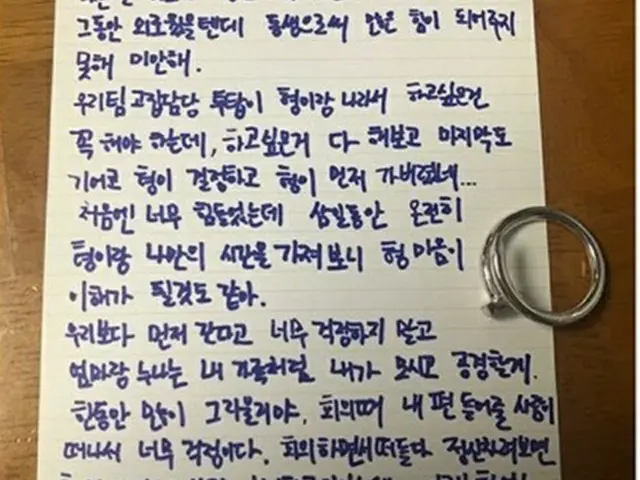 그동안 외로웠을텐데 동생으로써 많은 힘이 되어주지
못해 미안해.
우리팀 고집담당 투탑이 형이랑 나라서 하고싶은건
꼭 해야 하는데, 하고싶은거 다 해보고 마지막도
기어코 형이 결정하고 형이 먼저 가버렸네...
처음엔 너무 힘들었는데 삼일동안 온전히
형이랑 나만의 시간을 가져 보니 형 마음이
이해가 될것도 같아.
우리보다 먼저 간다고 너무 걱정하지 말고
엄마랑 누나는 내 가족처럼 내가 모시고 공경할게.
한동안 많이 그리울거야. 회의때 내 편 들어줄 사람이
떠나서 너무 걱정이다. 회의하면서 떠들다 정신차려보면